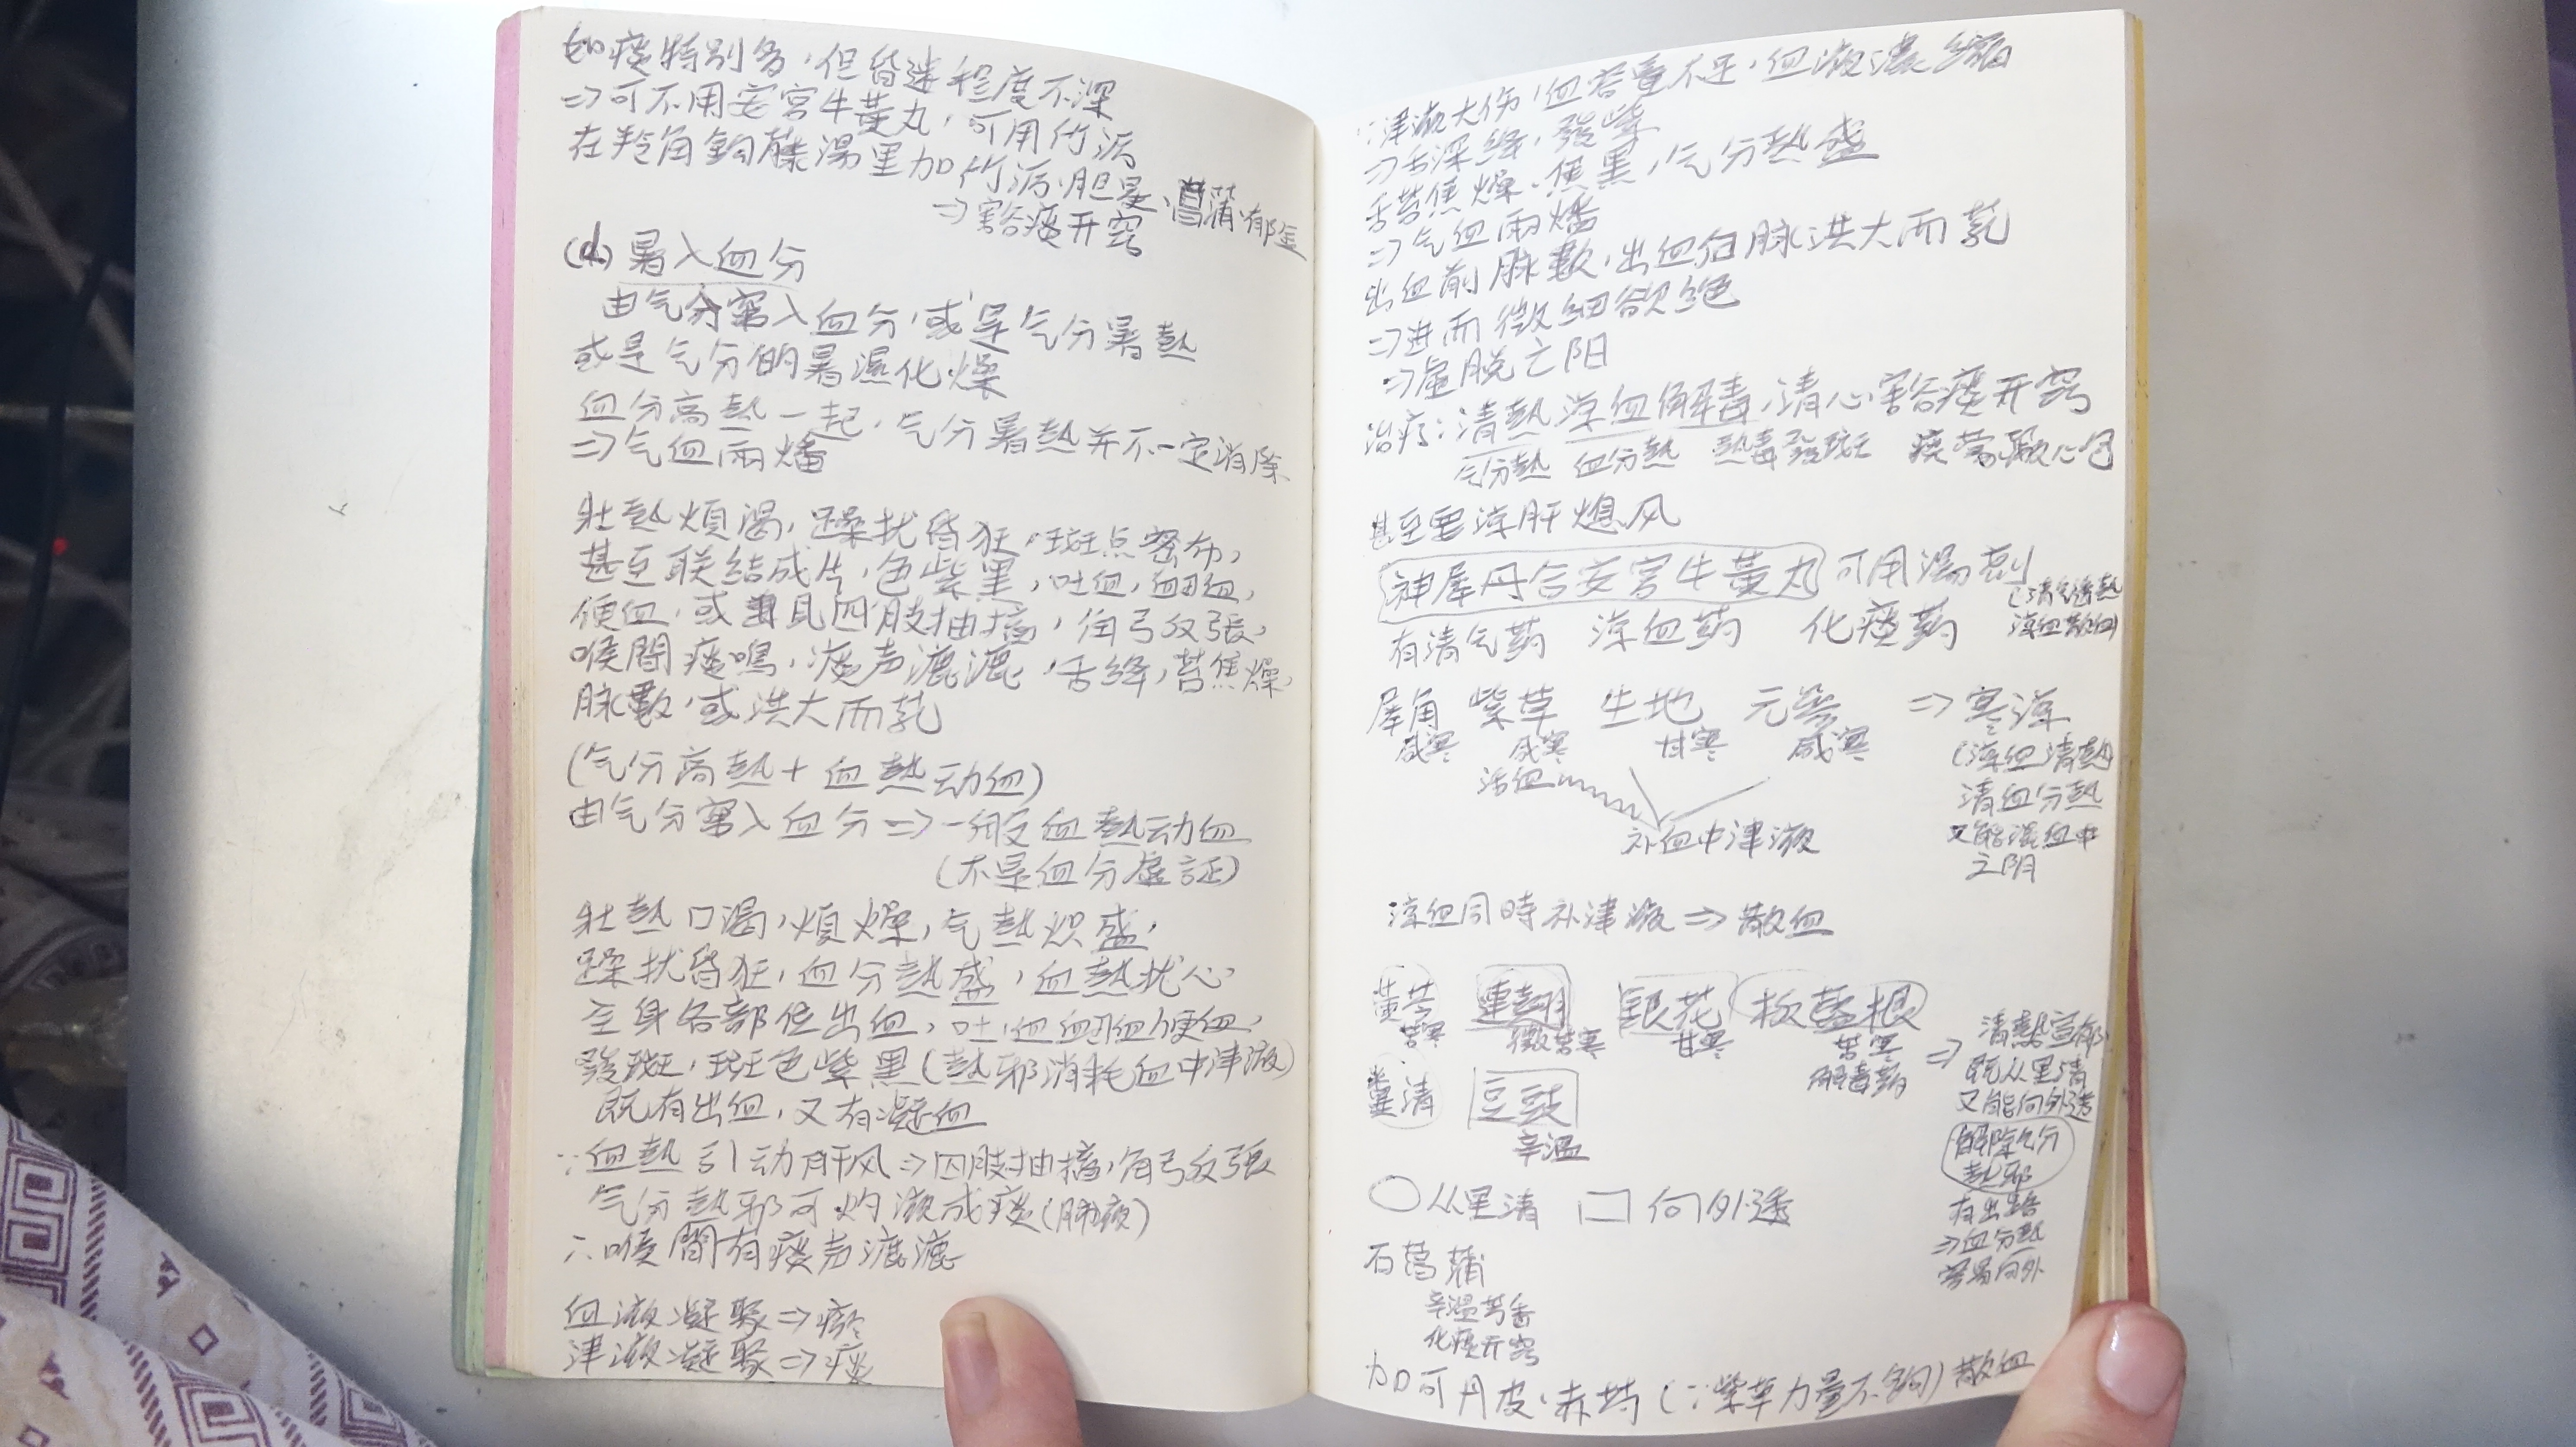 如痰特别多，但昏迷程度不深
⇒可不用安宮牛黃丸，可用竹沥
在羚角鈎藤湯里加竹沥、胆星、菖蒲、郁金
⇒豁痰开窍
(d) 暑入血分
由气分窜入血分，或是气分暑熱
或是气分的暑濕化燥
血分高熱一起，气分暑熱并不一定消除
⇒气血兩燔
壯熱煩渴，躁扰昏狂，斑点密布，
甚至联結成片，色紫黑，吐血，衄血，
便血，或兼見四肢抽搐，角弓反張，
喉間痰鳴，痰声漉漉，舌绛，苔焦燥，
脉數，或洪大而芤
(气分高熱+血熱动血)
由气分窜入血分⇒一般血熱动血
(不是血分虚証)
壯熱口渴，煩燥，气熱炽盛，
躁扰昏狂，血分熱盛，血熱扰心，
全身各部位出血，吐血衄血便血，
發斑，斑色紫黑(熱邪消耗血中津液)
既有出血，又有凝血
∵血熱引动肝风⇒四肢抽搐，角弓反張
气分熱邪可灼液成痰(肺液)
∴喉間有痰声漉漉
血液凝聚⇒瘀
津液凝聚⇒痰
∵津液大伤，血容量不足，血液濃縮
⇒舌深绛，發紫
舌苔焦燥、焦黑，气分熱盛
⇒气血兩燔
出血前脉數，出血后脉洪大而芤
⇒进而微细欲绝
⇒虚脱亡阳
治疗：清熱凉血解毒，清心豁痰开窍
气分熱 血分熱 熱毒發斑 痰蒙心包
甚至要凉肝熄风
神犀丹合安宮牛黃丸 可用湯剂
(清气透熱
凉血散血)
有清气药 凉血药 化痰药
犀角 紫草 生地 元参 ⇒寒凉
咸寒 咸寒 甘寒 咸寒
活血
补血中津液
(凉血清熱
清血分熱
又能滋血中
之阴
凉血同時补津液⇒散血
黃芩 連翹 銀花 板藍根
苦寒 微苦寒 甘寒 苦寒
解毒药
糞清 豆豉
辛溫
⇒ 清熱宣郁
既从里清
又能向外透
解除气分
熱邪
有出路
⇒血分熱
容易向外
○从里清 □向外透
石菖蒲
辛溫芳香
化痰开窍
加可丹皮、赤芍(∵紫草力量不夠)散血